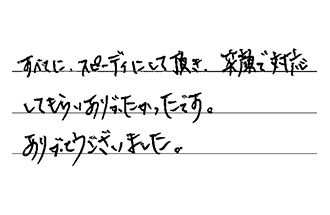 すべてに、スピーディにして頂き、笑顔で対応
してもらいありがたかったです。
ありがとうございました。